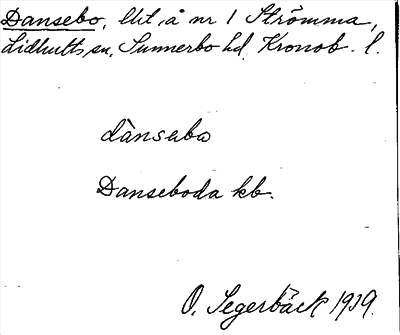 Dansebo, lht. å nr 1 Strömma,
Lidhults sn, Sunnerbo hd. Kronob. l.
dànsabo
Danseboda kb.
O. Segerbäck 1919.